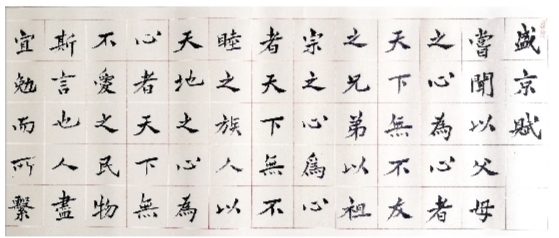 盛京賦
嘗聞以父母
之心為心者
天下無不友
之兄弟以祖
宗之心爲心
者天下無不
睦之族人以
天地之心為
心者天下無
不愛之民物
斯言也人盡
宜勉而所繫